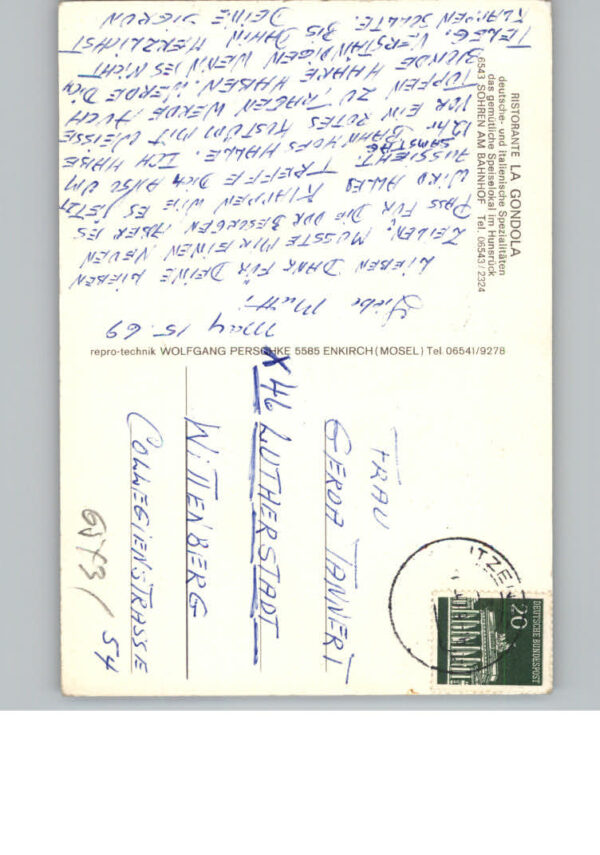 RISTORANTE LA GONDOLA
deutsche- und italienische Spezialitäten
das gemütliche Speiselokal im Hunsrück
6543 SOHREN AM BAHNHOF Tel. 06543/2324
May 15. 69
Liebe Mutti,
LIEBEN DANK FÜR DEINE LIEBEN
ZEILEN. MUSSTE MIR EINEN NEUEN
PASS FÜR DIE DDR BESORGEN ABER ES
WIRD ALLES KLAPPEN WIE ES JETZT
AUSSIEHT. TREFFE DICH ALSO UM
SAMSTAG
12 hr BAHNHOFSHALLE. ICH HABE
VOR EIN ROTES KOSTÜM MIT WEISSE
TUPFEN ZU TRAGEN WERDE AUCH
BLONDE HAARE HABEN. WERDE DICH
TELEG. VERSTÄNDIGEN WENN ES NICHT
KLAPPEN SOLLTE. BIS DAHIN HERZLICHST
DEINE
repro-technik WOLFGANG PERSCHKE 5585 ENKIRCH (MOSEL) Tel. 06541/9278
FRAU
GERDA TANNERT
X 46 LUTHERSTADT
WITTENBERG
COLLEGIENSTRASSE
54
6543/
20
DEUTSCHE BUNDESPOST